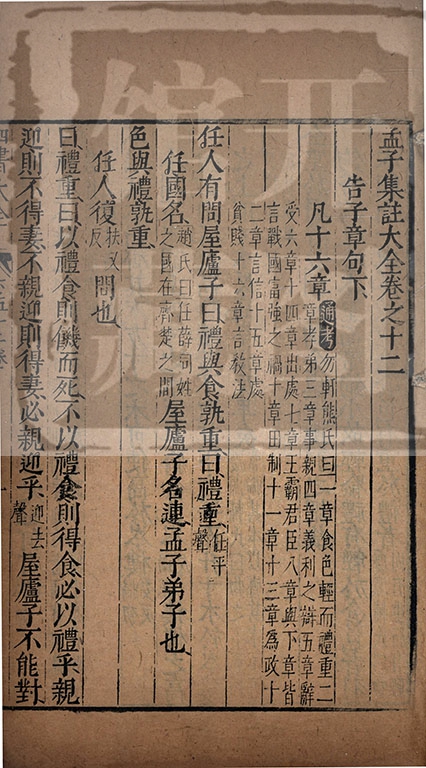 孟子集註大全卷之十二
告子章句下
凡十六章 通考 勿軒熊氏曰一章食色輕而禮重二
章孝弟三章事親四章義利之辯五章辭
受六章十四章出處七章王霸君臣八章與下章皆
言戰國富強之禍十章田制十一章十三章為政十
二章言信十五章處
貧賤十六章言教法
任人有問屋廬子曰禮與食孰重曰禮重 任平聲
任國名 趙氏曰任薛同姓之國在齊楚之間 屋廬子名連孟子弟子也
色與禮孰重
任人復 扶又反 問也
曰禮重曰以禮食則饑而死不以禮食則得食必以禮乎親
迎則不得妻不親迎則得妻必親迎乎 迎去聲 屋廬子不能對